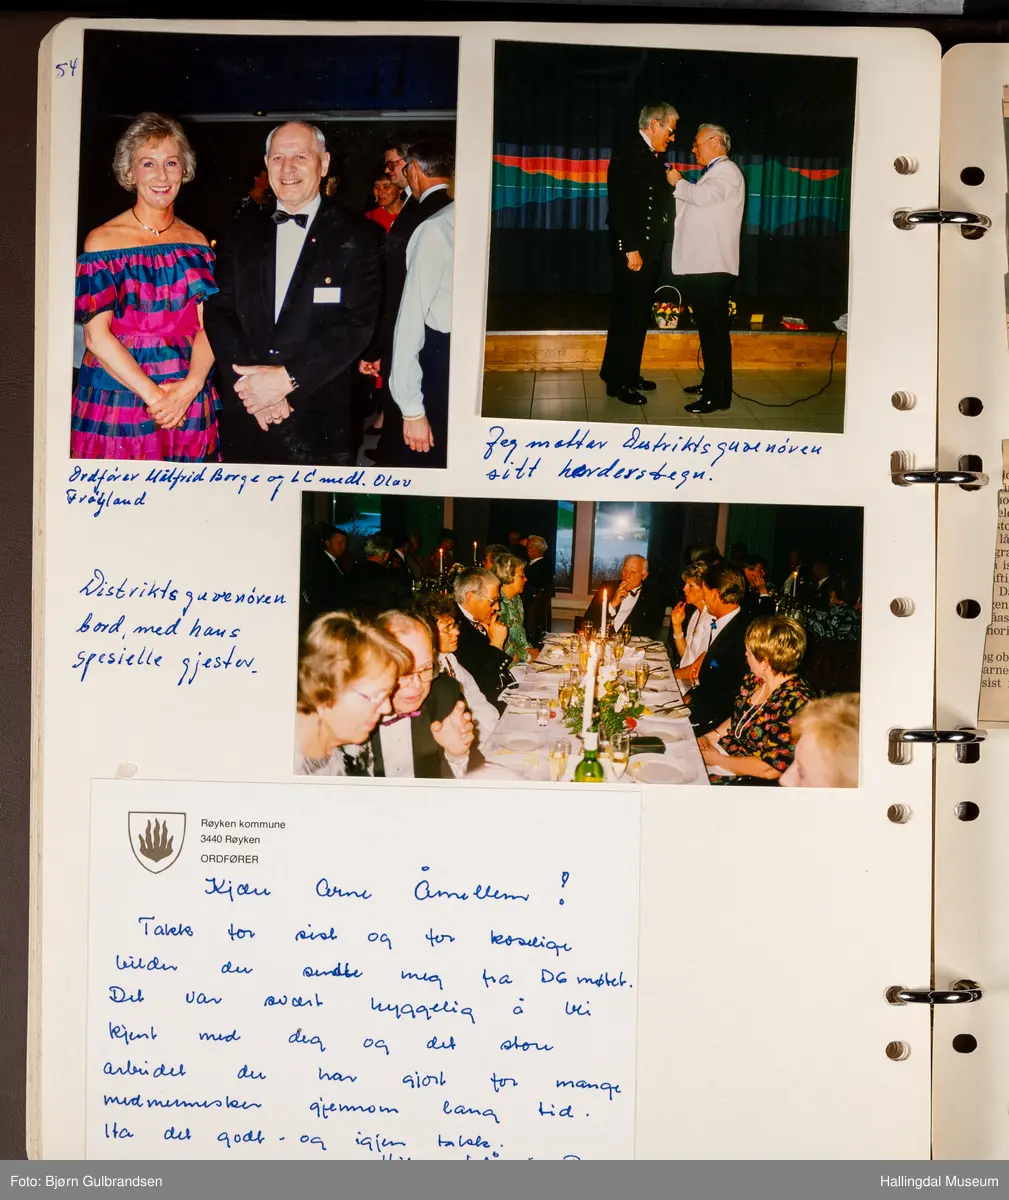 54
Ordfører Målfrid Borge og LC medl. Olav
Frøyland
Jeg mottar Distriktsguvenören
sitt hœderstegn.
Distriktsguvenören
bord, med hans
spesielle gjester.
Røyken kommune
3440 Røyken
ORDFØRER
Kjære Arne Åmellem!
Takk for sist og for koselige
bilder du sendte meg fra DG møtet.
Det var svært hyggelig å bli
kjent med deg og det store
arbeidet du har gjort for mange
medmennesker gjennom lang tid.
Ha det godt - og igjen takk.
Foto: Bjørn Gulbrandsen
Hallingdal Museum